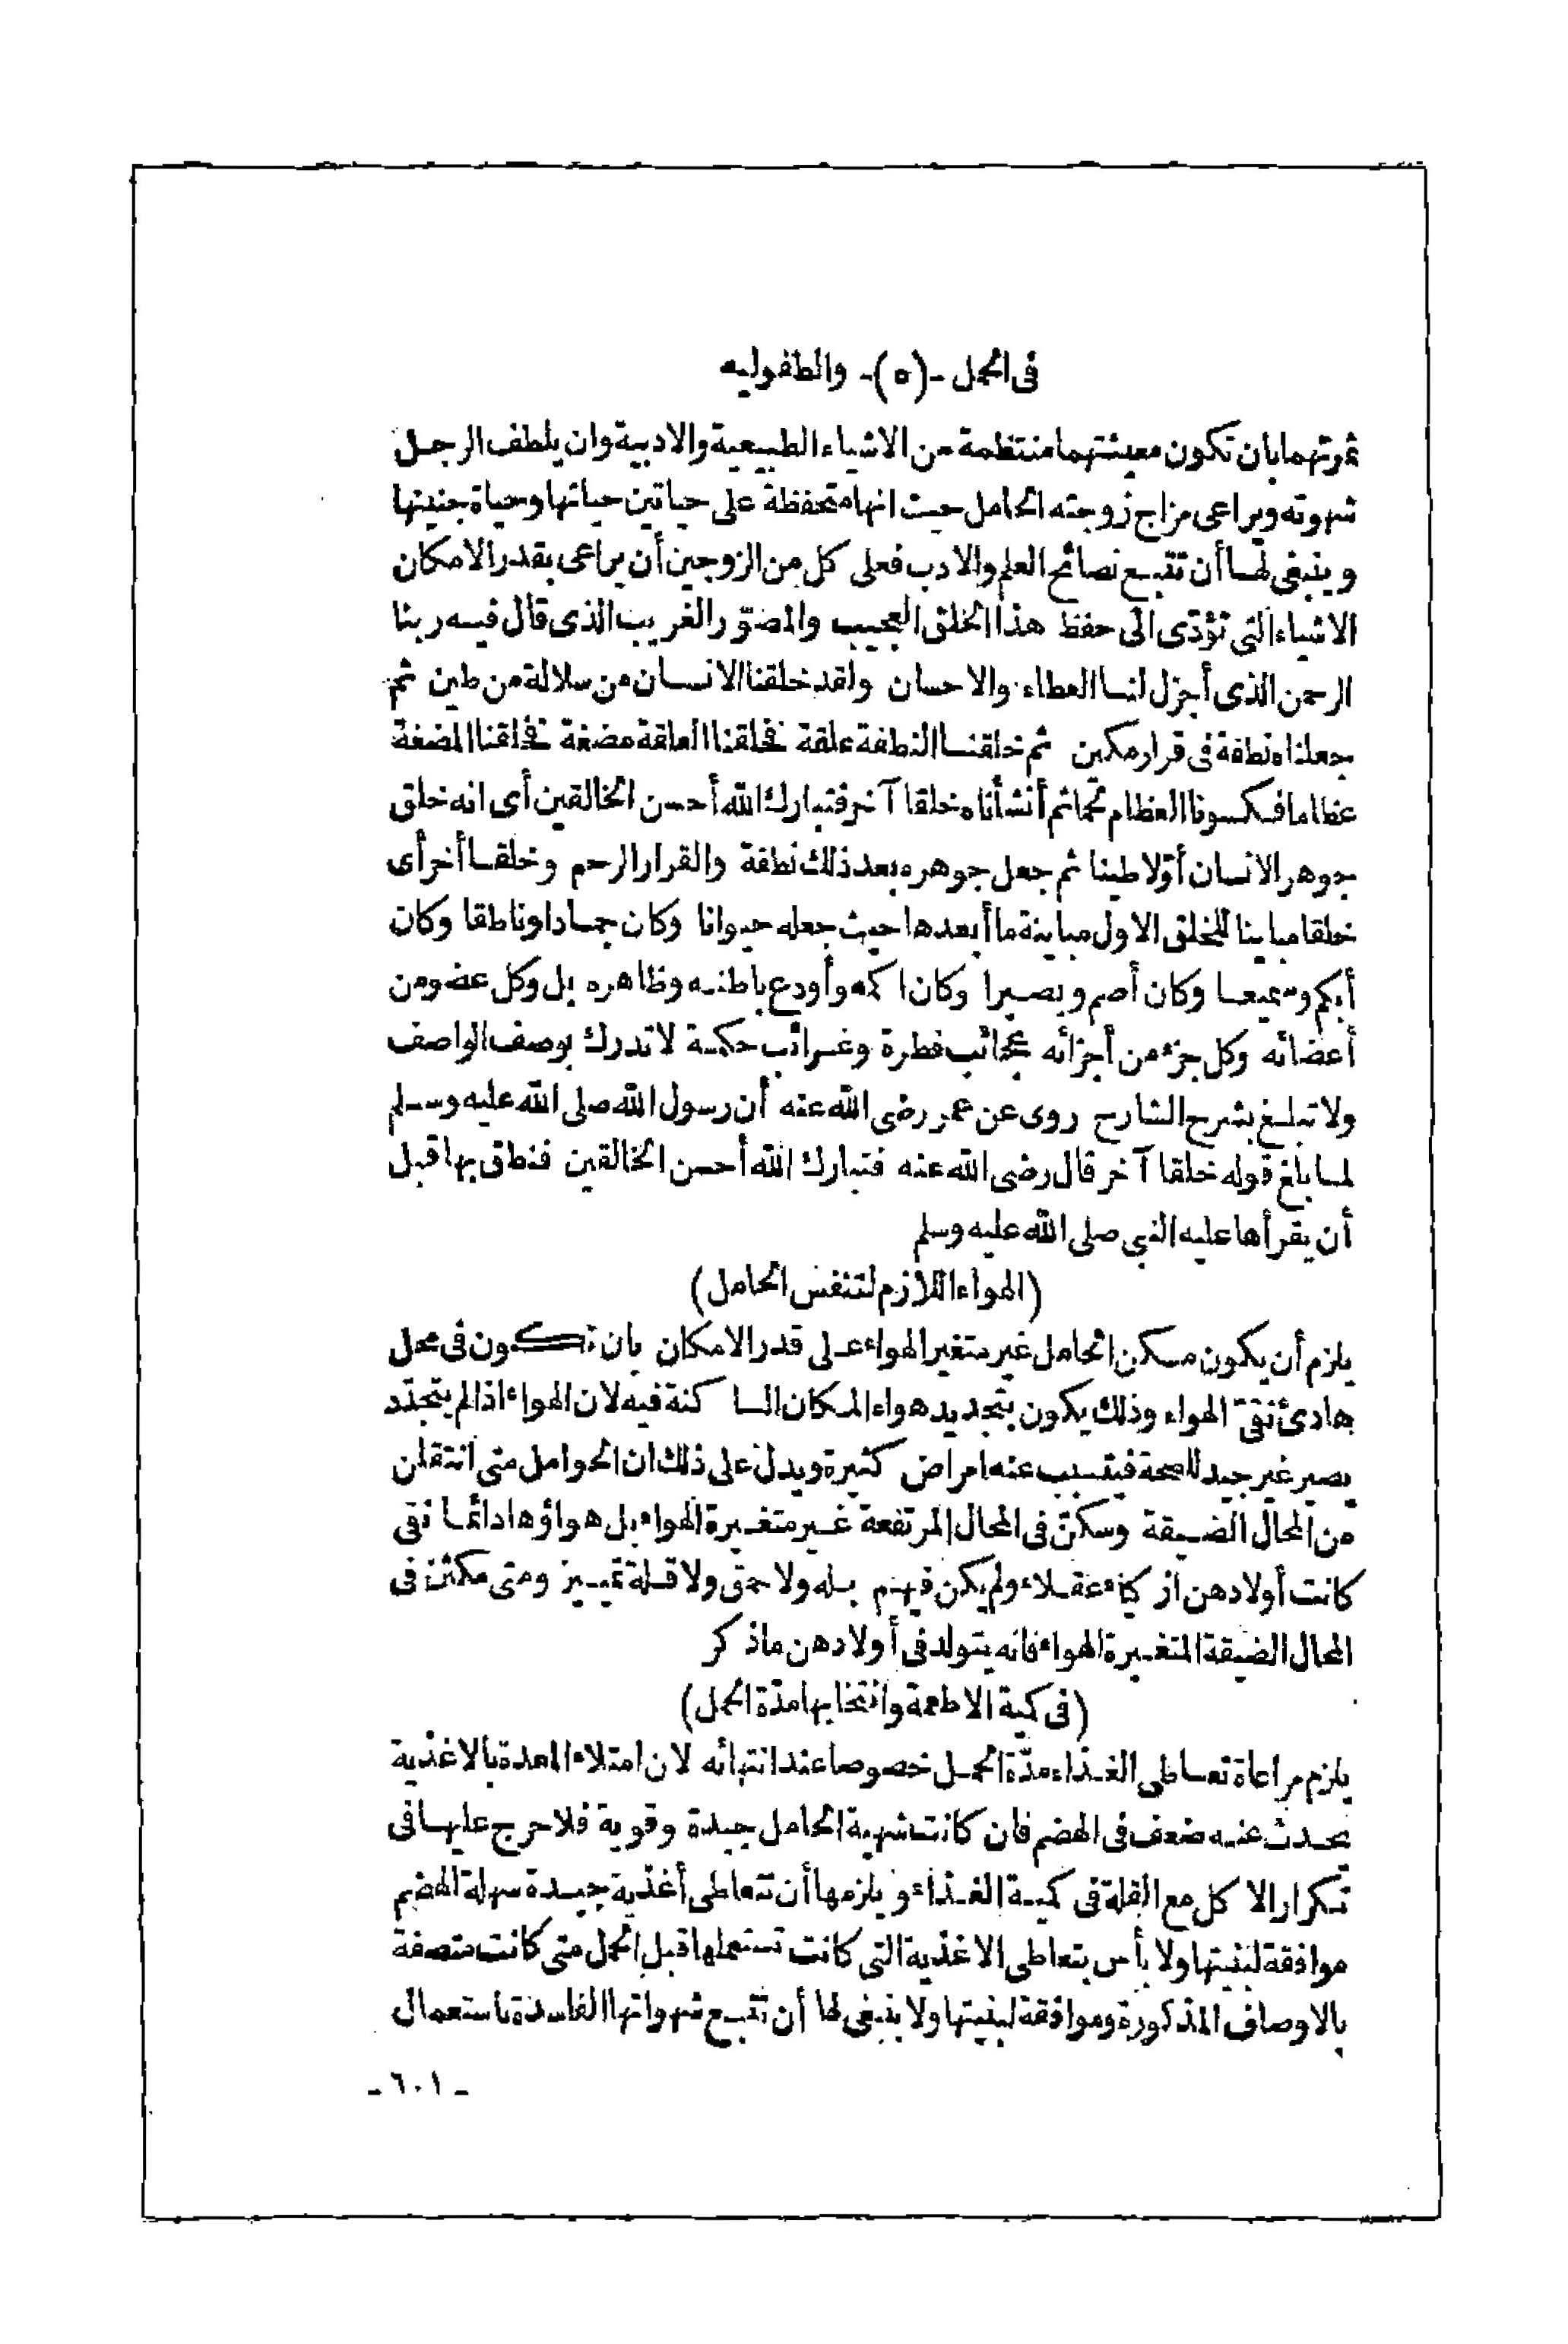 فى الحمل -(٥)- والطفوليه
ثمرتهما بان تكون معيشتهما منتظمة من الاشياء الطبيعية والادبية وان يلطف الرجل
شهوته ويراعى مزاج زوجته الحامل حيث انها متحفظة على حياتين حياتها وحياة جنينها
وينبغى لها أن تتبع نصائح العلم والادب فعلى كل من الزوجين أن يراعى بقدر الامكان
الاشياء التى تؤدى الى حفظ هذا الخلق العجيب والمصوّر الغريب الذى قال فيه ربنا
الرحمن الذى أجزل لنا العطاء والاحسان ولقد خلقنا الانسان من سلالة من طين ثم
جعلناه نطفة فى قرار مكين ثم خلقنا النطفة علقة فخلقنا العلقة مضغة فخلقنا المضغة
عظاما فكسونا العظام لحما ثم أنشأناه خلقا آخر فتبارك الله أحسن الخالقين أى انه خلق
جوهر الانسان أوّلا طينا ثم جعل جوهره بعد ذلك نطفة والقرار الرحم وخلقا أخر أى
خلقا مباينا للخلق الاول مباينة ما أبعدها حيث جعله حيوانا وكان جمادا وناطقا وكان
أبكم وسميعا وكان أصم وبصيرا وكان اكمه وأودع باطنه وظاهره بل وكل عضو من
أعضائه وكل جزء من أجزائه عجائب فطرة وغرائب حكمة لا تدرك بوصف الواصف
ولا تبلغ بشرح الشارح روى عن عمر رضى الله عنه أن رسول الله صلى الله عليه وسلم
لما بلغ قوله خلقا آخر قال رضى الله عنه فتبارك الله أحسن الخالقين فنطق بها قبل
أن يقرأها عليه النبى صلى الله عليه وسلم
(الهواء اللازم لتنفس الحامل)
يلزم أن يكون مسكن الحامل غير متغير الهواء على قدر الامكان بان تكون فى محل
هادئ نقىّ الهواء وذلك يكون بتجديد هواء المكان الساكنة فيه لان الهواء اذا لم يتجدّد
يصير غير جيد للصحة فيتسبب عنه امراض كثيرة ويدل على ذلك ان الحوامل متى انتقلن
من المحال الضيقة وسكنّ فى المحال المرتفعة غير متغيرة الهواء بل هواؤها دائما نقى
كانت أولادهن ازكياء عقلاء ولم يكن فيهم بله ولا حمق ولا قلة تمييز ومتى مكثن فى
المحال الضيقة المتغيرة الهواء فانه يتولد فى أولادهن ماذكر
(فى كمية الاطعمة وانتخابها مدّة الحمل)
يلزم مراعاة تعاطى الغذاء مدّة الحمل خصوصا عند انتهائه لان امتلاء المعدة بالاغذية
يحدث عنه ضعف فى الهضم فان كانت شهية الحامل جيدة وقوية فلا حرج عليها فى
تكرار الاكل مع القلة فى كمية الغذاء ويلزمها أن تتعاطى أغذية جيدة سهلة الهضم
موافقة لبنيتها ولا بأس بتعاطى الاغذية التى كانت تستعملها قبل الحمل متى كانت متصفة
بالاوصاف المذكورة وموافقة لبنيتها ولا ينبغى لها أن تتبع شهواتها الفاسدة باستعمال
- ٦٠١ -